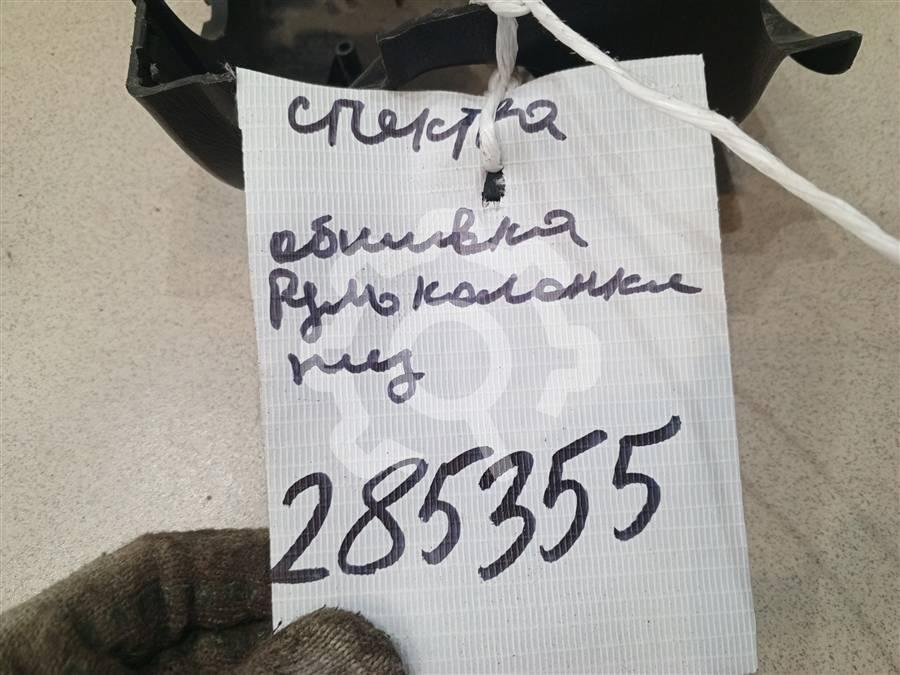 спектра
обшивка
Руль колонки
низ
285355